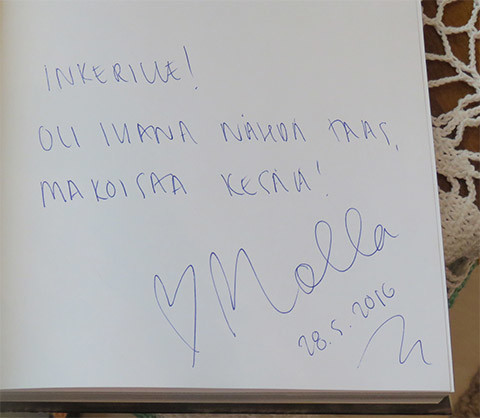 INKERILLE!
OLI IHANA NÄHDÄ TAAS,
MAKOISAA KESÄÄ!
♡ Molla
28.5.2016